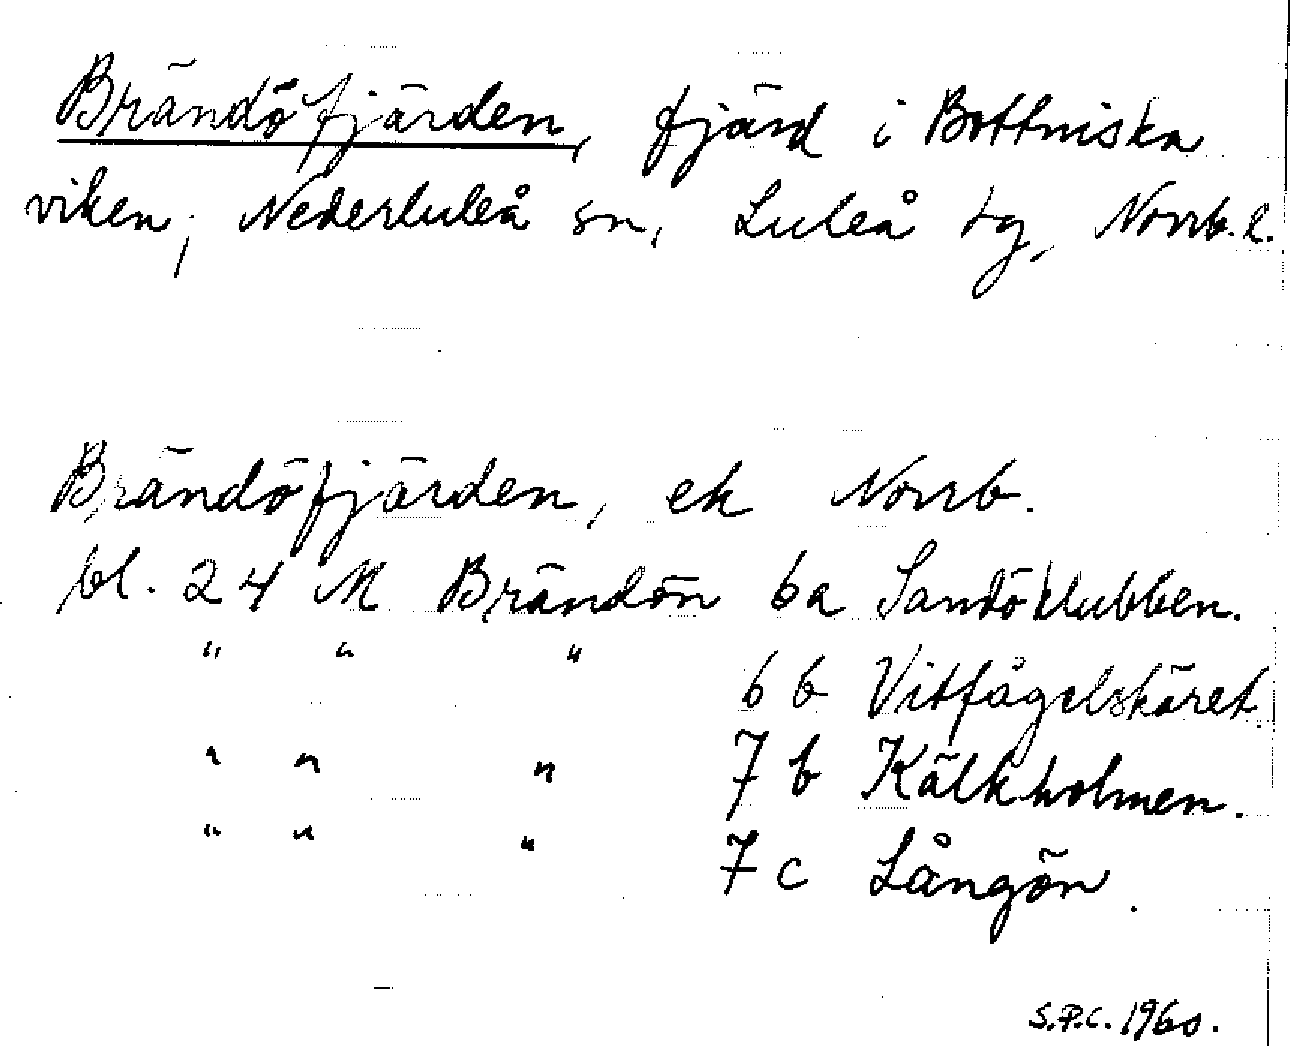 Brändöfjärden, fjärd i Bottniska
viken, Nederluleå sn, Luleå tg, Norrb. l.
Brändöfjärden, ek Norrb.
bl. 24 M Brändön 6a Sandöklubben.
" " " 6 b Vitfågelskäret.
" " " 7 b Kälkholmen.
" " " 7 c Långön.
S.P.C. 1960.